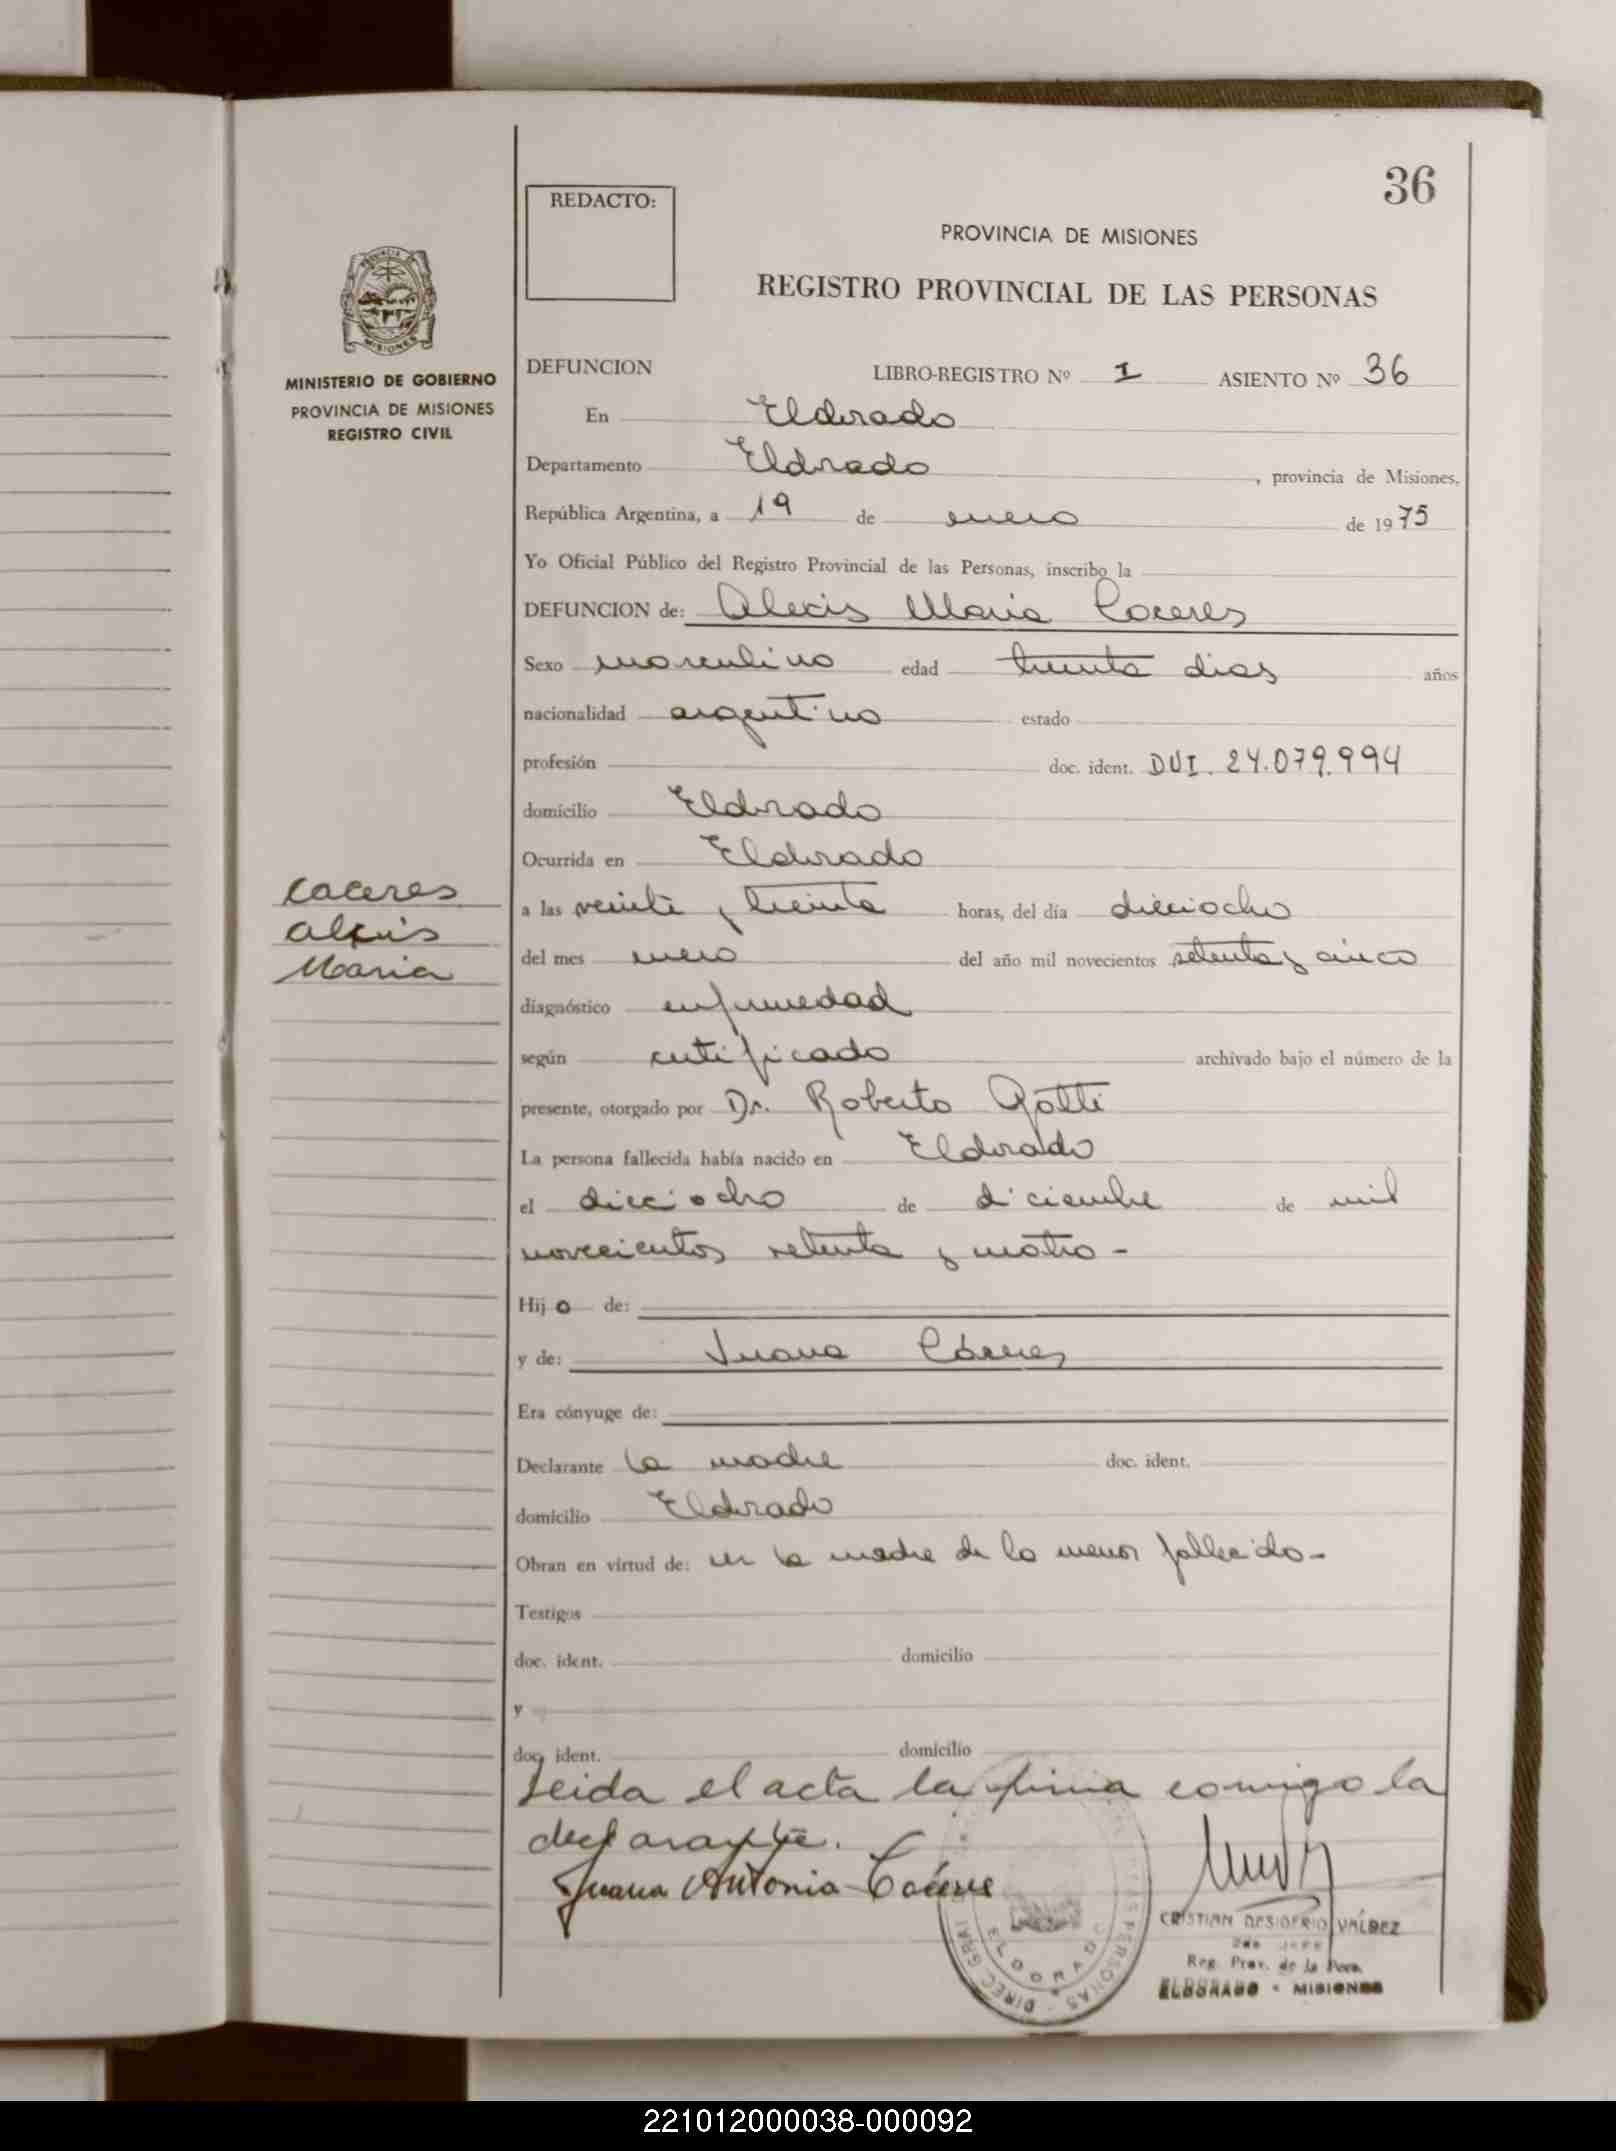 36
REDACTO:
PROVINCIA DE MISIONES
REGISTRO PROVINCIAL DE LAS PERSONAS
MINISTERIO DE GOBIERNO
PROVINCIA DE MISIONES
REGISTRO CIVIL
DEFUNCION LIBRO-REGISTRO Nº I ASIENTO Nº 36
En Eldorado
Departamento Eldorado, provincia de Misiones,
República Argentina, a 19 de enero de 1975
Yo Oficial Público del Registro Provincial de las Personas, inscribo la
DEFUNCION de: Alexis Maria Caceres
Sexo masculino edad treinta dias años
nacionalidad argentino estado
profesión doc. ident. DUI. 24.079.994
domicilio Eldorado
Ocurrida en Eldorado
Caceres
Alexis
Maria
a las veinte y treinta horas, del día dieciocho
del mes enero del año mil novecientos setenta y cinco
diagnóstico enfermedad
según certificado archivado bajo el número de la
presente, otorgado por Dr. Roberto Gotti
La persona fallecida había nacido en Eldorado
el dieciocho de diciembre de mil
novecientos setenta y cuatro -
Hijo de:
y de: Juana Cáceres
Era cónyuge de:
Declarante la madre doc. ident.
domicilio Eldorado
Obran en virtud de: ser la madre de la menor fallecido -
Testigos
doc. ident. domicilio
y
doc. ident. domicilio
Leida el acta la firma conmigo la
declarante.
Juana Antonia Cáceres
CRISTIAN DESIDERIO VALDEZ
2do JEFE
Reg. Prov. de la Pers.
ELDORADO - MISIONES
ELDORADO
DIREC. GRAL PERSONAS
221012000038-000092